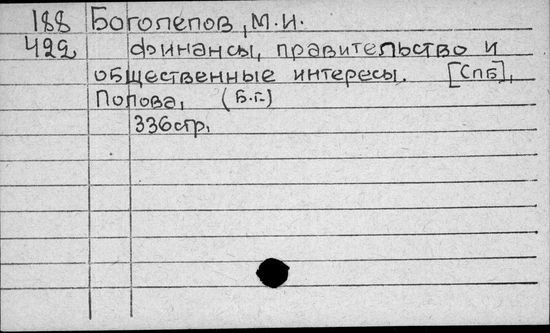 188 Боголепов, М.И.
422 финансы, правительство и
общественные интересы. [Спб],
Попова, (Б.г.)
336стр.